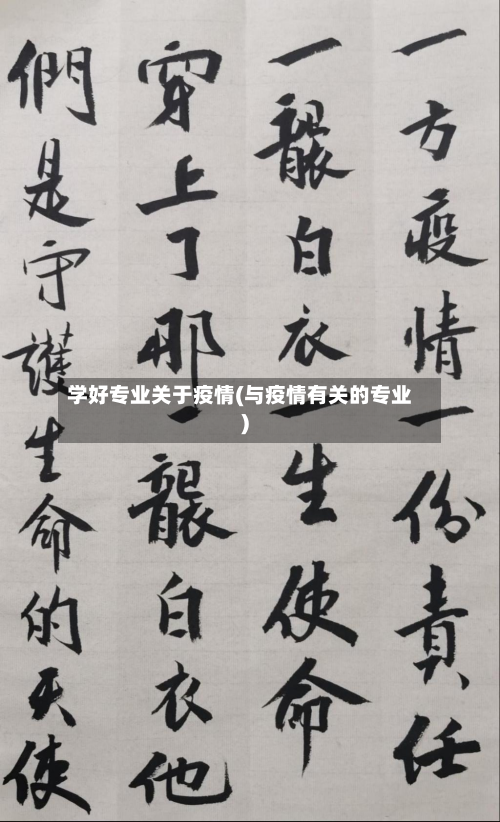 一方疫情一份責任
一襲白衣一生使命
穿上了那一襲白衣他
們是守護生命的天使
学好专业关于疫情(与疫情有关的专业
)